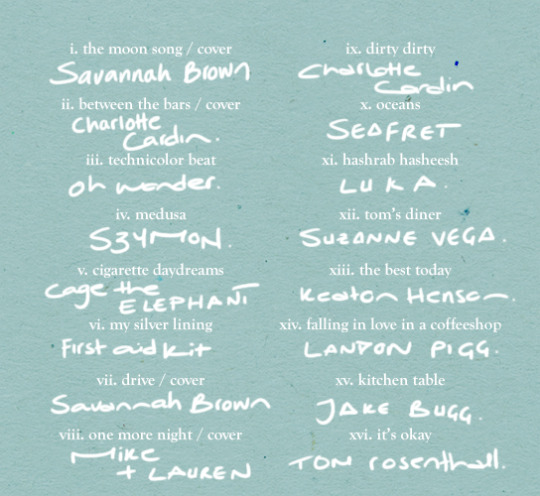 i. the moon song / cover
Savannah Brown
ii. between the bars / cover
Charlotte
Cardin.
iii. technicolor beat
oh wonder.
iv. medusa
SZYMON.
v. cigarette daydreams
cage the
ELEPHANT
vi. my silver lining
First aid kit
vii. drive / cover
Savannah Brown
viii. one more night / cover
MIKE
+ LAUREN
ix. dirty dirty
Charlotte
Cardin
x. oceans
SEAFRET
xi. hashrab hasheesh
LUKA.
xii. tom's diner
SUZANNE VEGA.
xiii. the best today
Keaton Henson.
xiv. falling in love in a coffeeshop
LANDON PIGG.
xv. kitchen table
JAKE BUGG.
xvi. it's okay
TOM rosenthall.